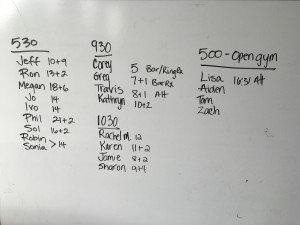 530
Jeff 10+9
Ron 13+2
Megan 18+6
Jo 14
Ivo 14
Phil 21+2
Sol 16+2
Robin
Sonia > 14
930
Corey
Greg 5 Bar/Ring Rx
Travis 7+1 Bar Rx
Kathryn 8+1 Alt
10+2
1030
Rachel M. 12
Karen 11+2
Jamie 8+2
Sharon 9+4
500 - Open gym
Lisa Alt
Aiden
Tom
Zach